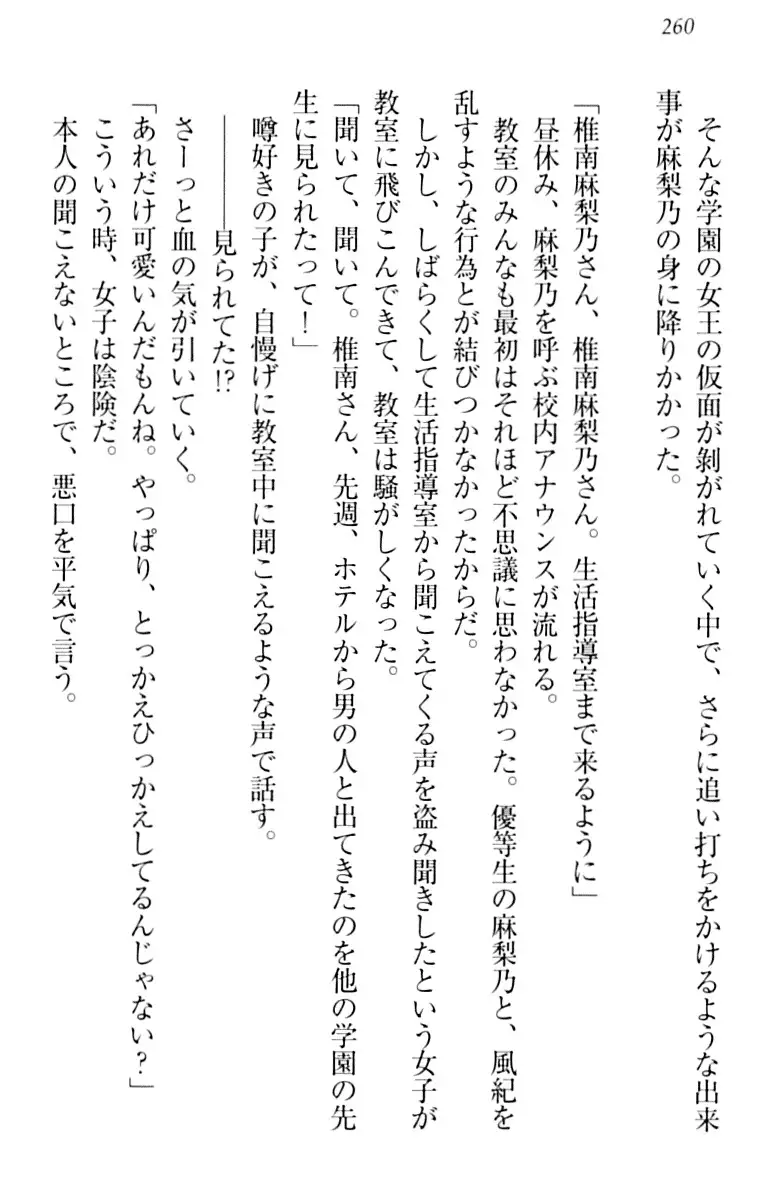 260
そんな学園の女王の仮面が剝がれていく中で、さらに追い打ちをかけるような出来
事が麻梨乃の身に降りかかった。
「椎南麻梨乃さん、椎南麻梨乃さん。生活指導室まで来るように」
昼休み、麻梨乃を呼ぶ校内アナウンスが流れる。
教室のみんなも最初はそれほど不思議に思わなかった。優等生の麻梨乃と、風紀を
乱すような行為とが結びつかなかったからだ。
しかし、しばらくして生活指導室から聞こえてくる声を盗み聞きしたという女子が
教室に飛びこんできて、教室は騒がしくなった。
「聞いて、聞いて。椎南さん、先週、ホテルから男の人と出てきたのを他の学園の先
生に見られたって！」
噂好きの子が、自慢げに教室中に聞こえるような声で話す。
――――見られてた!?
さーっと血の気が引いていく。
「あれだけ可愛いんだもんね。やっぱり、とっかえひっかえしてるんじゃない？」
こういう時、女子は陰険だ。
本人の聞こえないところで、悪口を平気で言う。